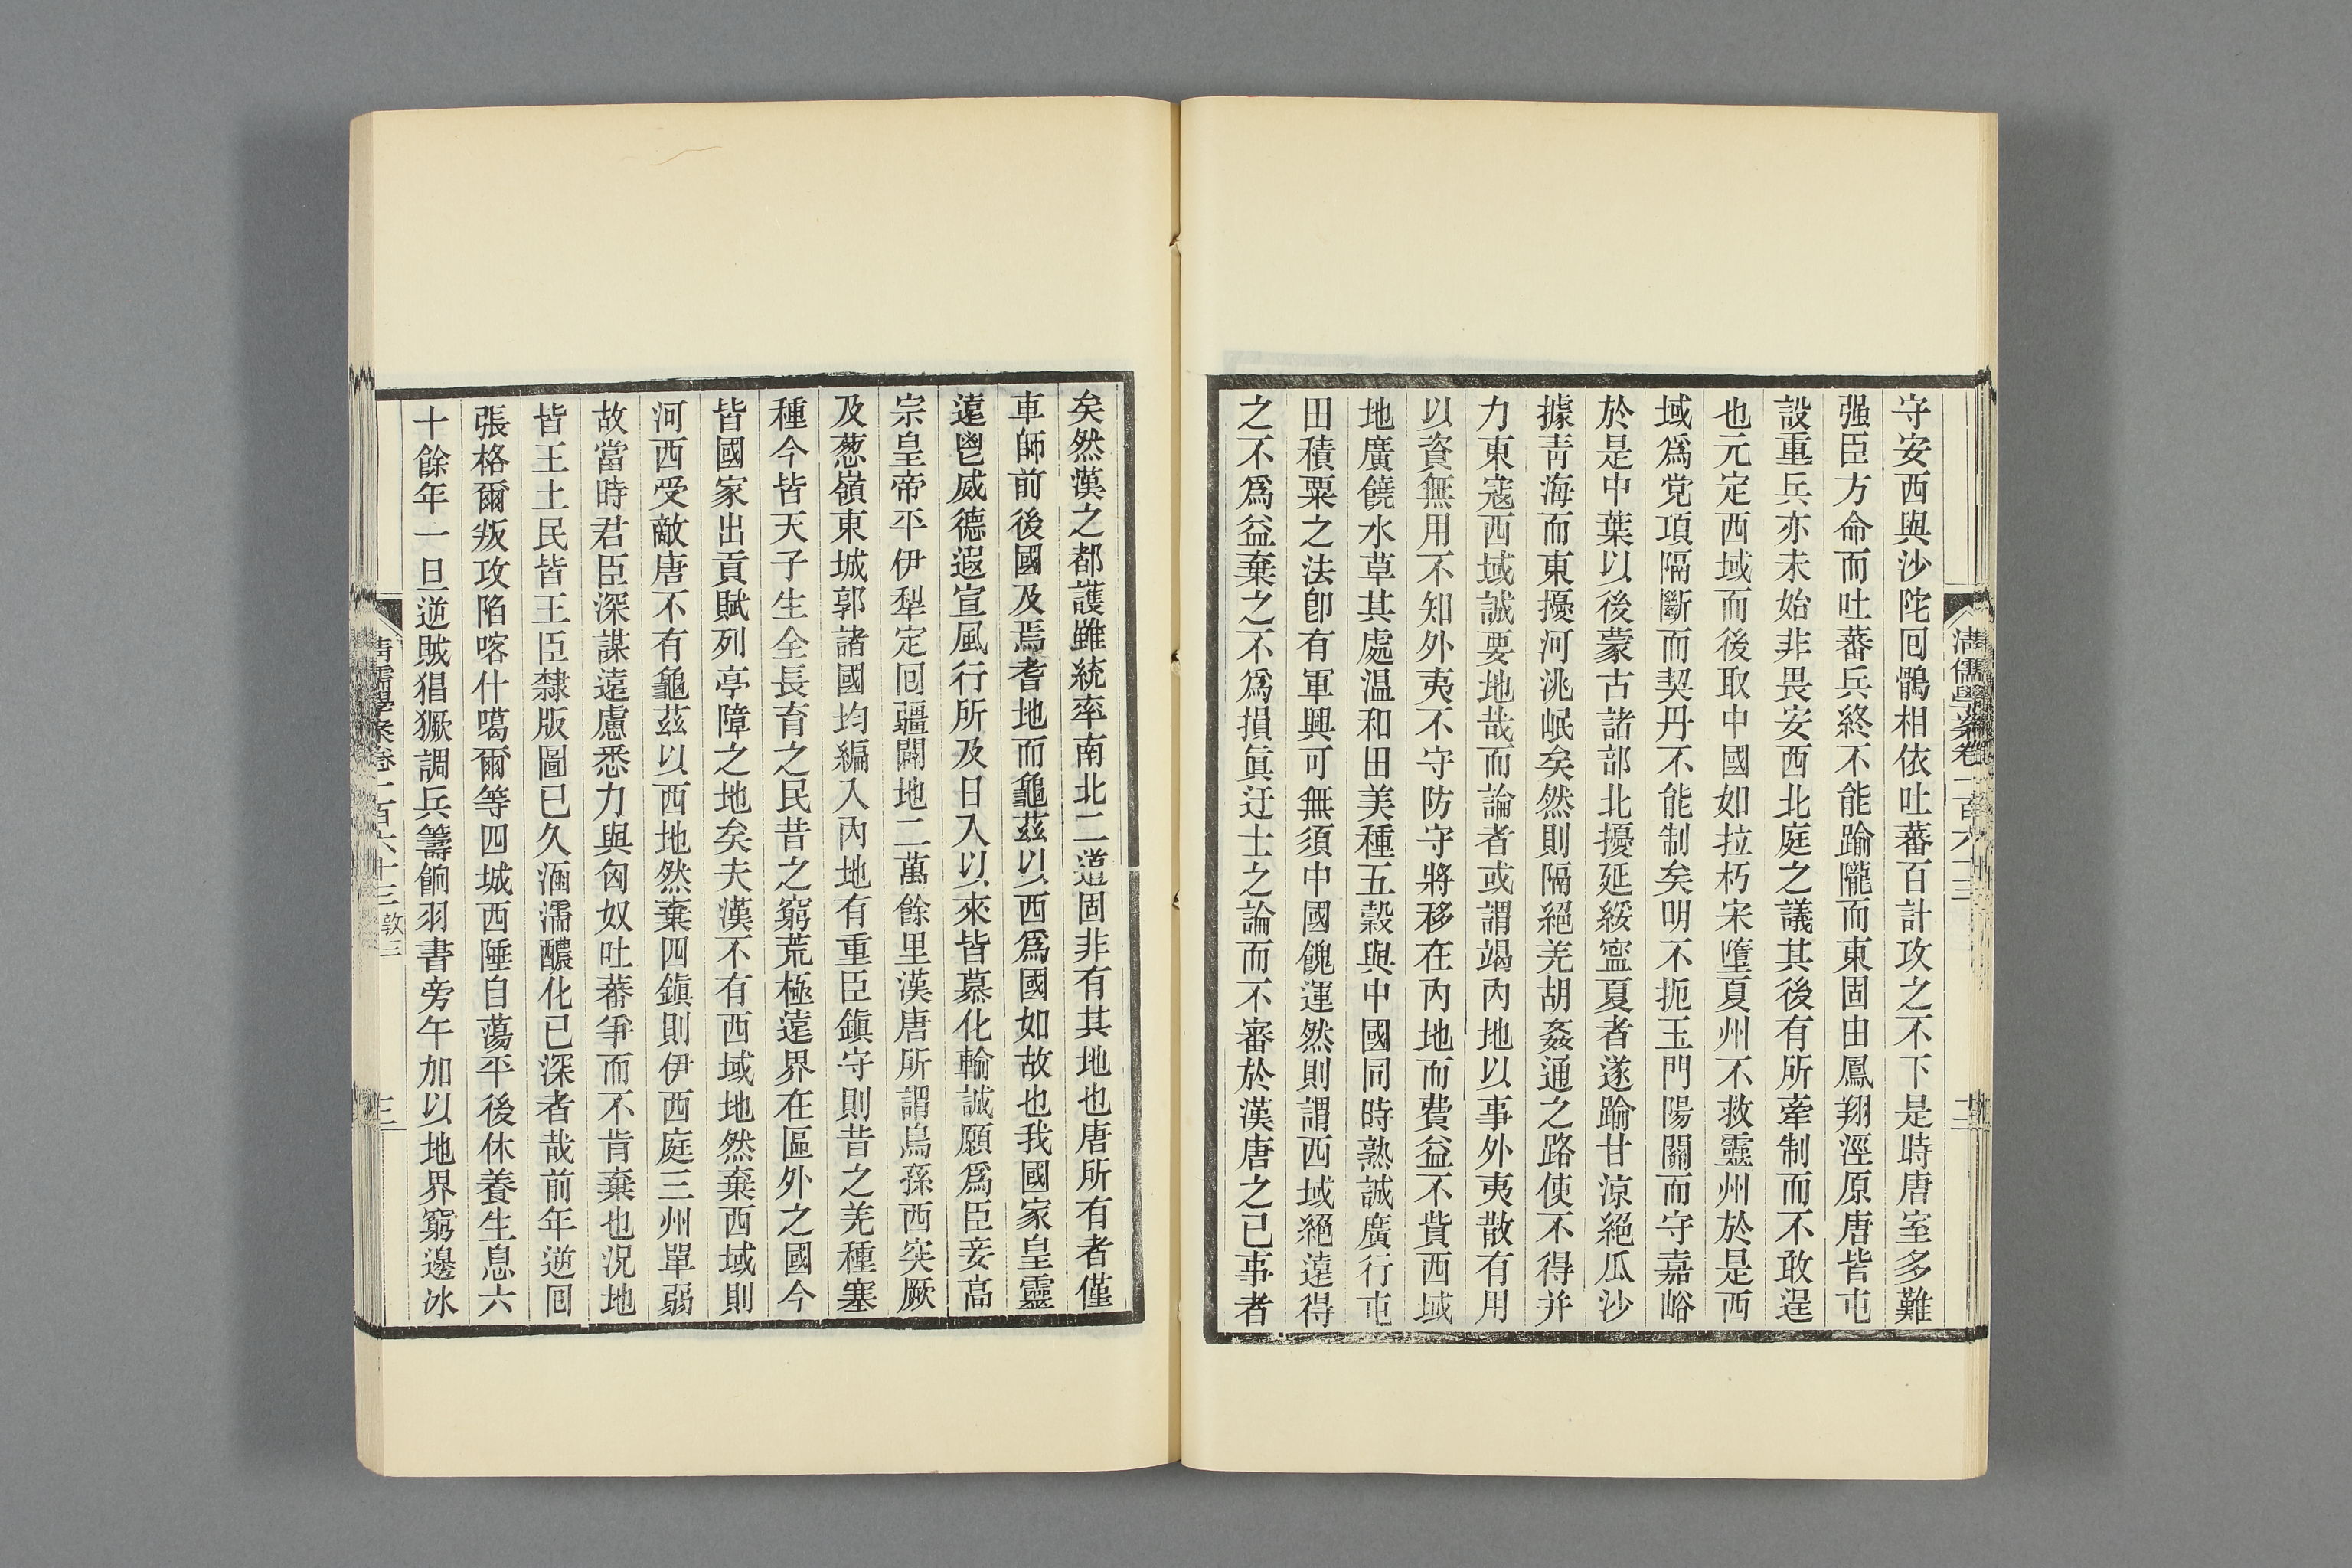 守安西與沙陀囘鶻相依吐蕃百計攻之不下是時唐室多難
强臣方命而吐蕃兵終不能踰隴而東固由鳳翔涇原唐皆屯
設重兵亦未始非畏安西北庭之議其後有所牽制而不敢逞
也元定西域而後取中國如拉朽宋墮夏州不救靈州於是西
域爲党項隔斷而契丹不能制矣明不扼玉門陽關而守嘉峪
於是中葉以後蒙古諸部北擾延綏寧夏者遂踰甘涼絕瓜沙
據靑海而東擾河洮岷矣然則隔絕羌胡姦通之路使不得并
力東寇西域誠要地哉而論者或謂竭內地以事外夷散有用
以資無用不知外夷不守防守將移在內地而費益不貲西域
地廣饒水草其處温和田美種五穀與中國同時熟誠廣行屯
田積粟之法卽有軍興可無須中國餽運然則謂西域絕遠得
之不爲益棄之不爲損眞迂士之論而不審於漢唐之已事者
矣然漢之都護雖統率南北二道固非有其地也唐所有者僅
車師前後國及焉耆地而龜茲以西爲國如故也我國家皇靈
遠鬯威德遐宣風行所及日入以來皆慕化輸誠願爲臣妾高
宗皇帝平伊犁定囘疆闢地二萬餘里漢唐所謂烏孫西突厥
及葱嶺東城郭諸國均編入內地有重臣鎭守則昔之羌種塞
種今皆天子生全長育之民昔之窮荒極遠界在區外之國今
皆國家出貢賦列亭障之地矣夫漢不有西域地然棄西域則
河西受敵唐不有龜茲以西地然棄四鎭則伊西庭三州單弱
故當時君臣深謀遠慮悉力與匈奴吐蕃爭而不肯棄也況地
皆王土民皆王臣隸版圖已久涵濡醲化已深者哉前年逆囘
張格爾叛攻陷喀什噶爾等四城西陲自蕩平後休養生息六
十餘年一旦逆賊猖獗調兵籌餉羽書旁午加以地界窮邊冰
清儒學案卷一百六十三 敦三
三